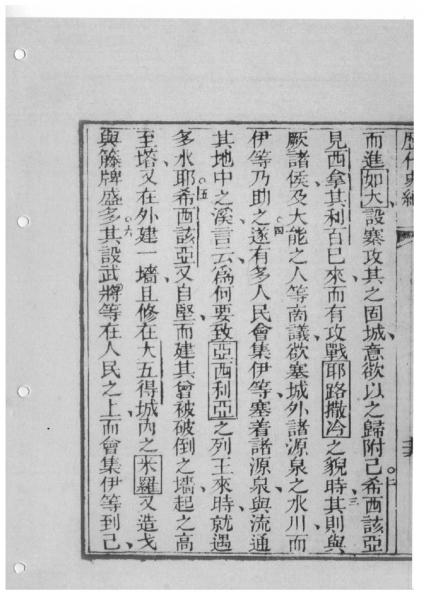 歷代史紀
而進如大設寨攻其之固城意欲以之歸附己。二希西該亞
見西拿其利百已來而有攻戰耶路撒冷之貌時三其則與
厥諸侯及大能之人等商議欲塞城外諸源泉之水川而
伊等乃助之。四遂有多人民會集伊等塞着諸源泉與流通
其地中之溪言云為何要致亞西利亞之列王來時就遇
多水耶。五希西該亞又自堅而建其曾被破倒之墻起之高
至塔又在外建一墻且修在大五得城內之米羅又造戈
與籐牌盛多。六其設武將等在人民之上而會集伊等到己